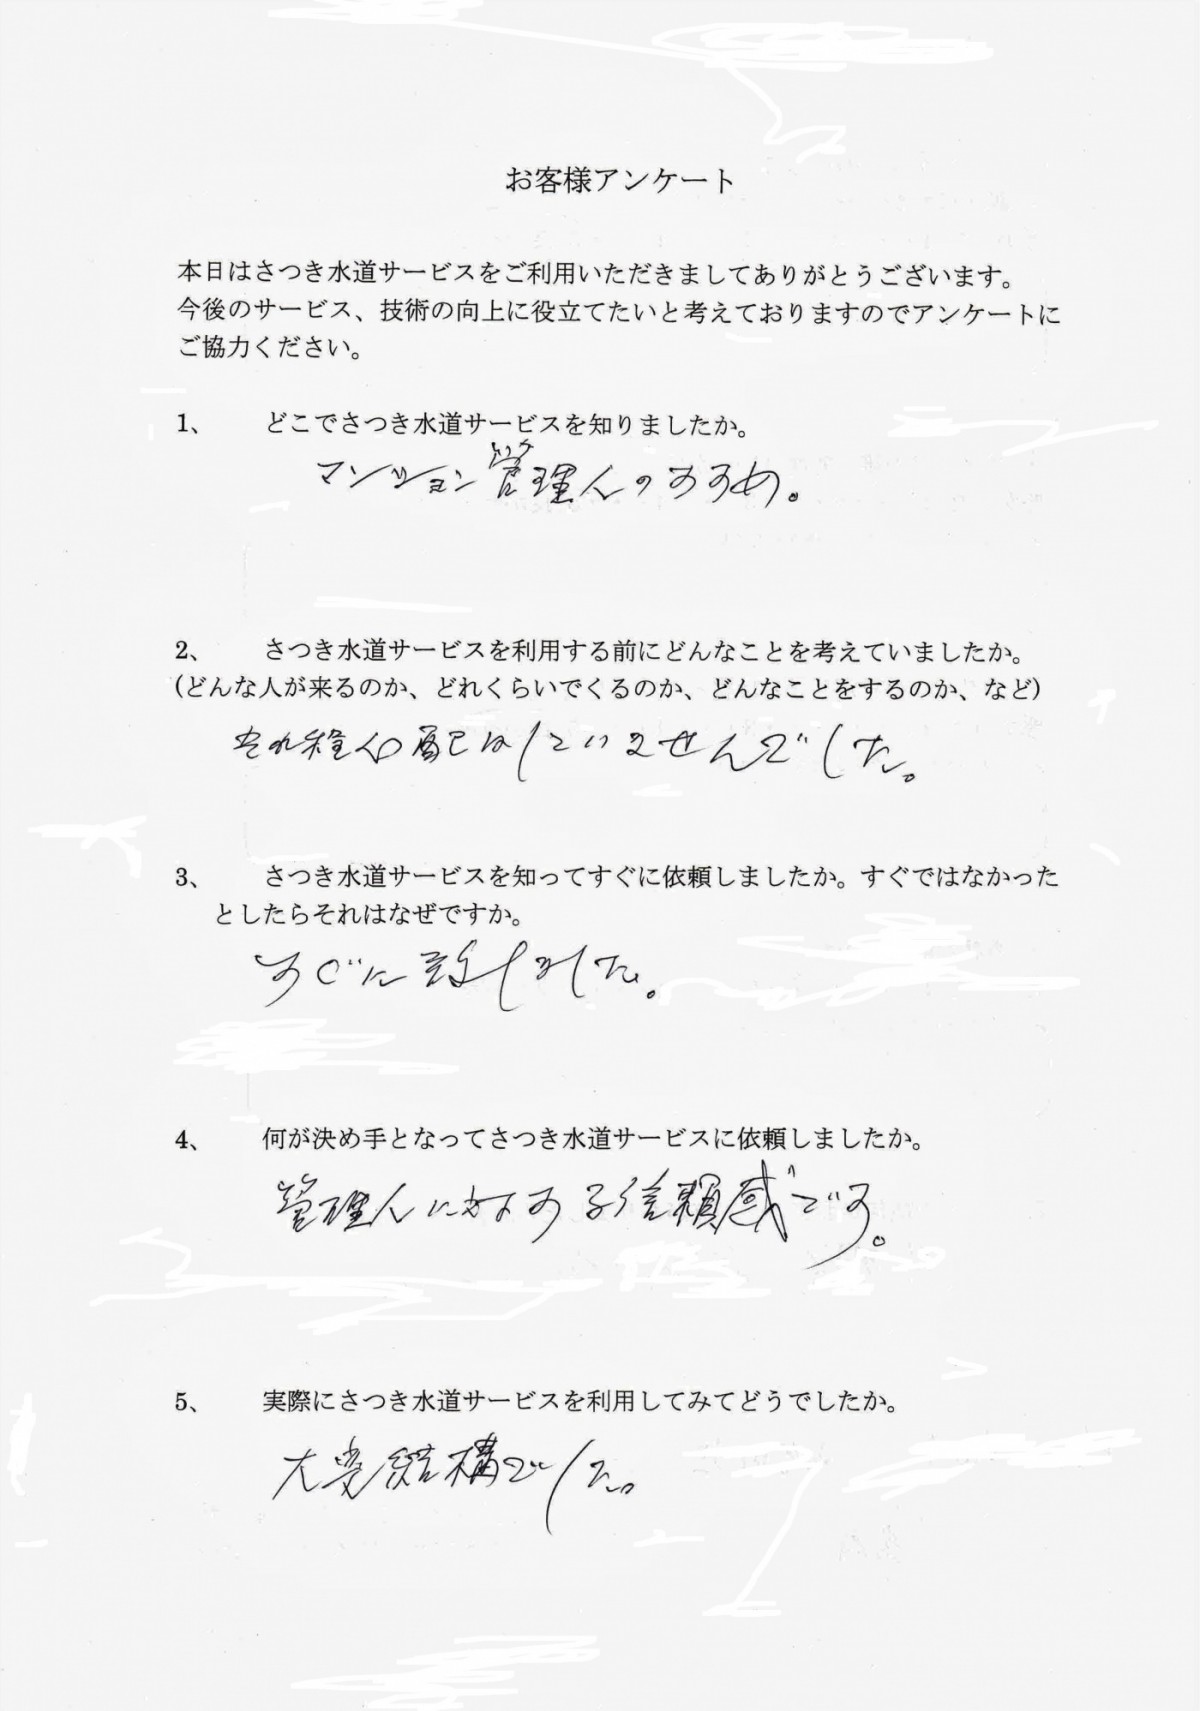 お客様アンケート
本日はさつき水道サービスをご利用いただきましてありがとうございます。
今後のサービス、技術の向上に役立てたいと考えておりますのでアンケートに
ご協力ください。
1、 どこでさつき水道サービスを知りましたか。
マンション管理人のすすめ。
2、 さつき水道サービスを利用する前にどんなことを考えていましたか。
(どんな人が来るのか、どれくらいでくるのか、どんなことをするのか、など)
それ程心配はしていませんでした。
3、 さつき水道サービスを知ってすぐに依頼しましたか。すぐではなかった
としたらそれはなぜですか。
すぐに しました。
4、 何が決め手となってさつき水道サービスに依頼しましたか。
管理人に対する信頼感です。
5、 実際にさつき水道サービスを利用してみてどうでしたか。
大変結構でした。